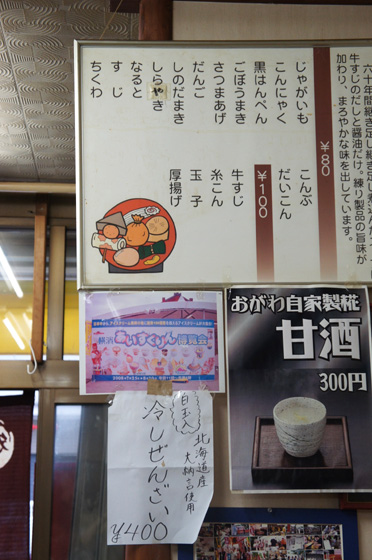 六十年間継ぎ足し継ぎ足し煮込んだ
牛すじのだしと醤油だけ。練り製品の旨味が
加わり、まろやかな味を出しています。
¥80
じゃがいも
こんにゃく
黒はんぺん
ごぼうまき
さつまあげ
だんご
しのだまき
しらやき
なると
すじ
ちくわ
こんぶ
だいこん
¥100
牛すじ
糸こん
玉子
厚揚げ
横濱
あいすくりん博覧会
白玉入
冷しぜんざい
北海道産
大納言使用
¥400
おがわ自家製糀
甘酒
300円